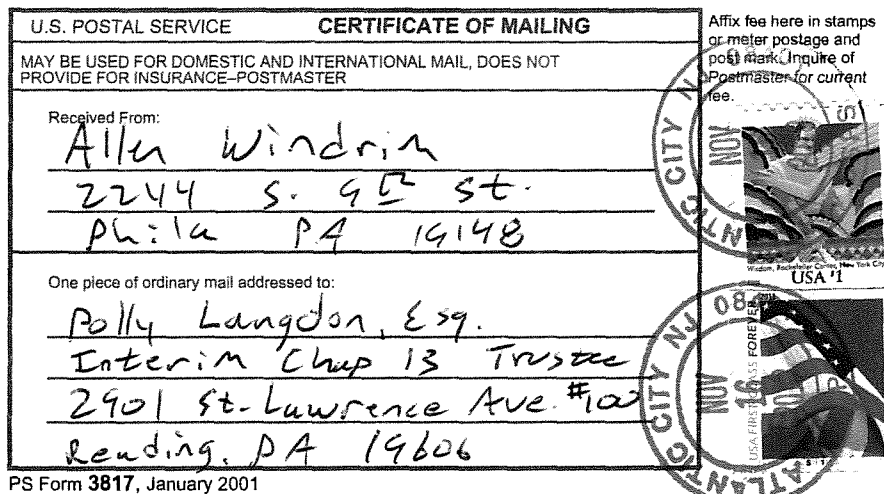 U.S. POSTAL SERVICE CERTIFICATE OF MAILING
MAY BE USED FOR DOMESTIC AND INTERNATIONAL MAIL, DOES NOT
PROVIDE FOR INSURANCE–POSTMASTER
Received From:
Allen Windrim
2244 S. 9th St.
Phila PA 19148
One piece of ordinary mail addressed to:
Polly Langdon, Esq.
Interim Chap 13 Trustee
2901 St. Lawrence Ave. #100
Reading, PA 19606
PS Form 3817, January 2001
Affix fee here in stamps
or meter postage and
post mark. Inquire of
Postmaster for current
fee.
ANTIC CITY NJ 084
NOV
Wisdom, Rockefeller Center, New York City
USA $1
ATLANTIC CITY NJ 08
NOV 16
USA FIRST CLASS FOREVER